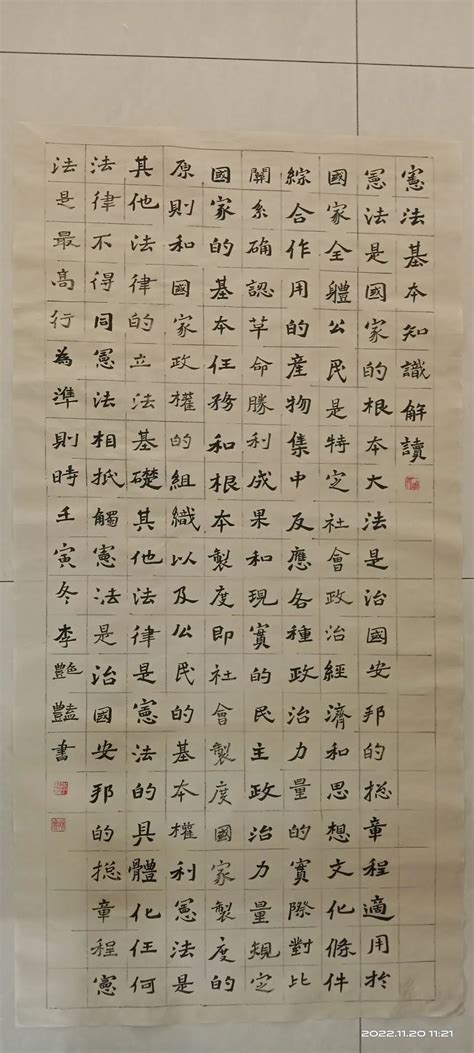 憲法基本知識解讀
憲法是國家的根本大法是治國安邦的摠章程適用於
國家全軆公民是特定社會政治經濟和思想文化條件
綜合作用的產物集中反應各種政治力量的實際對比
關系确認革命勝利成果和現實的民主政治力量規定
國家的基本任務和根本製度即社會製度國家製度的
原則和國家政權的組織以及公民的基本權利憲法是
其他法律的立法基礎其他法律是憲法的具體化任何
法律不得同憲法相抵觸憲法是治國安邦的摠章程憲
法是最高行為準則時壬寅冬李艷豔書
2022.11.20 11:21